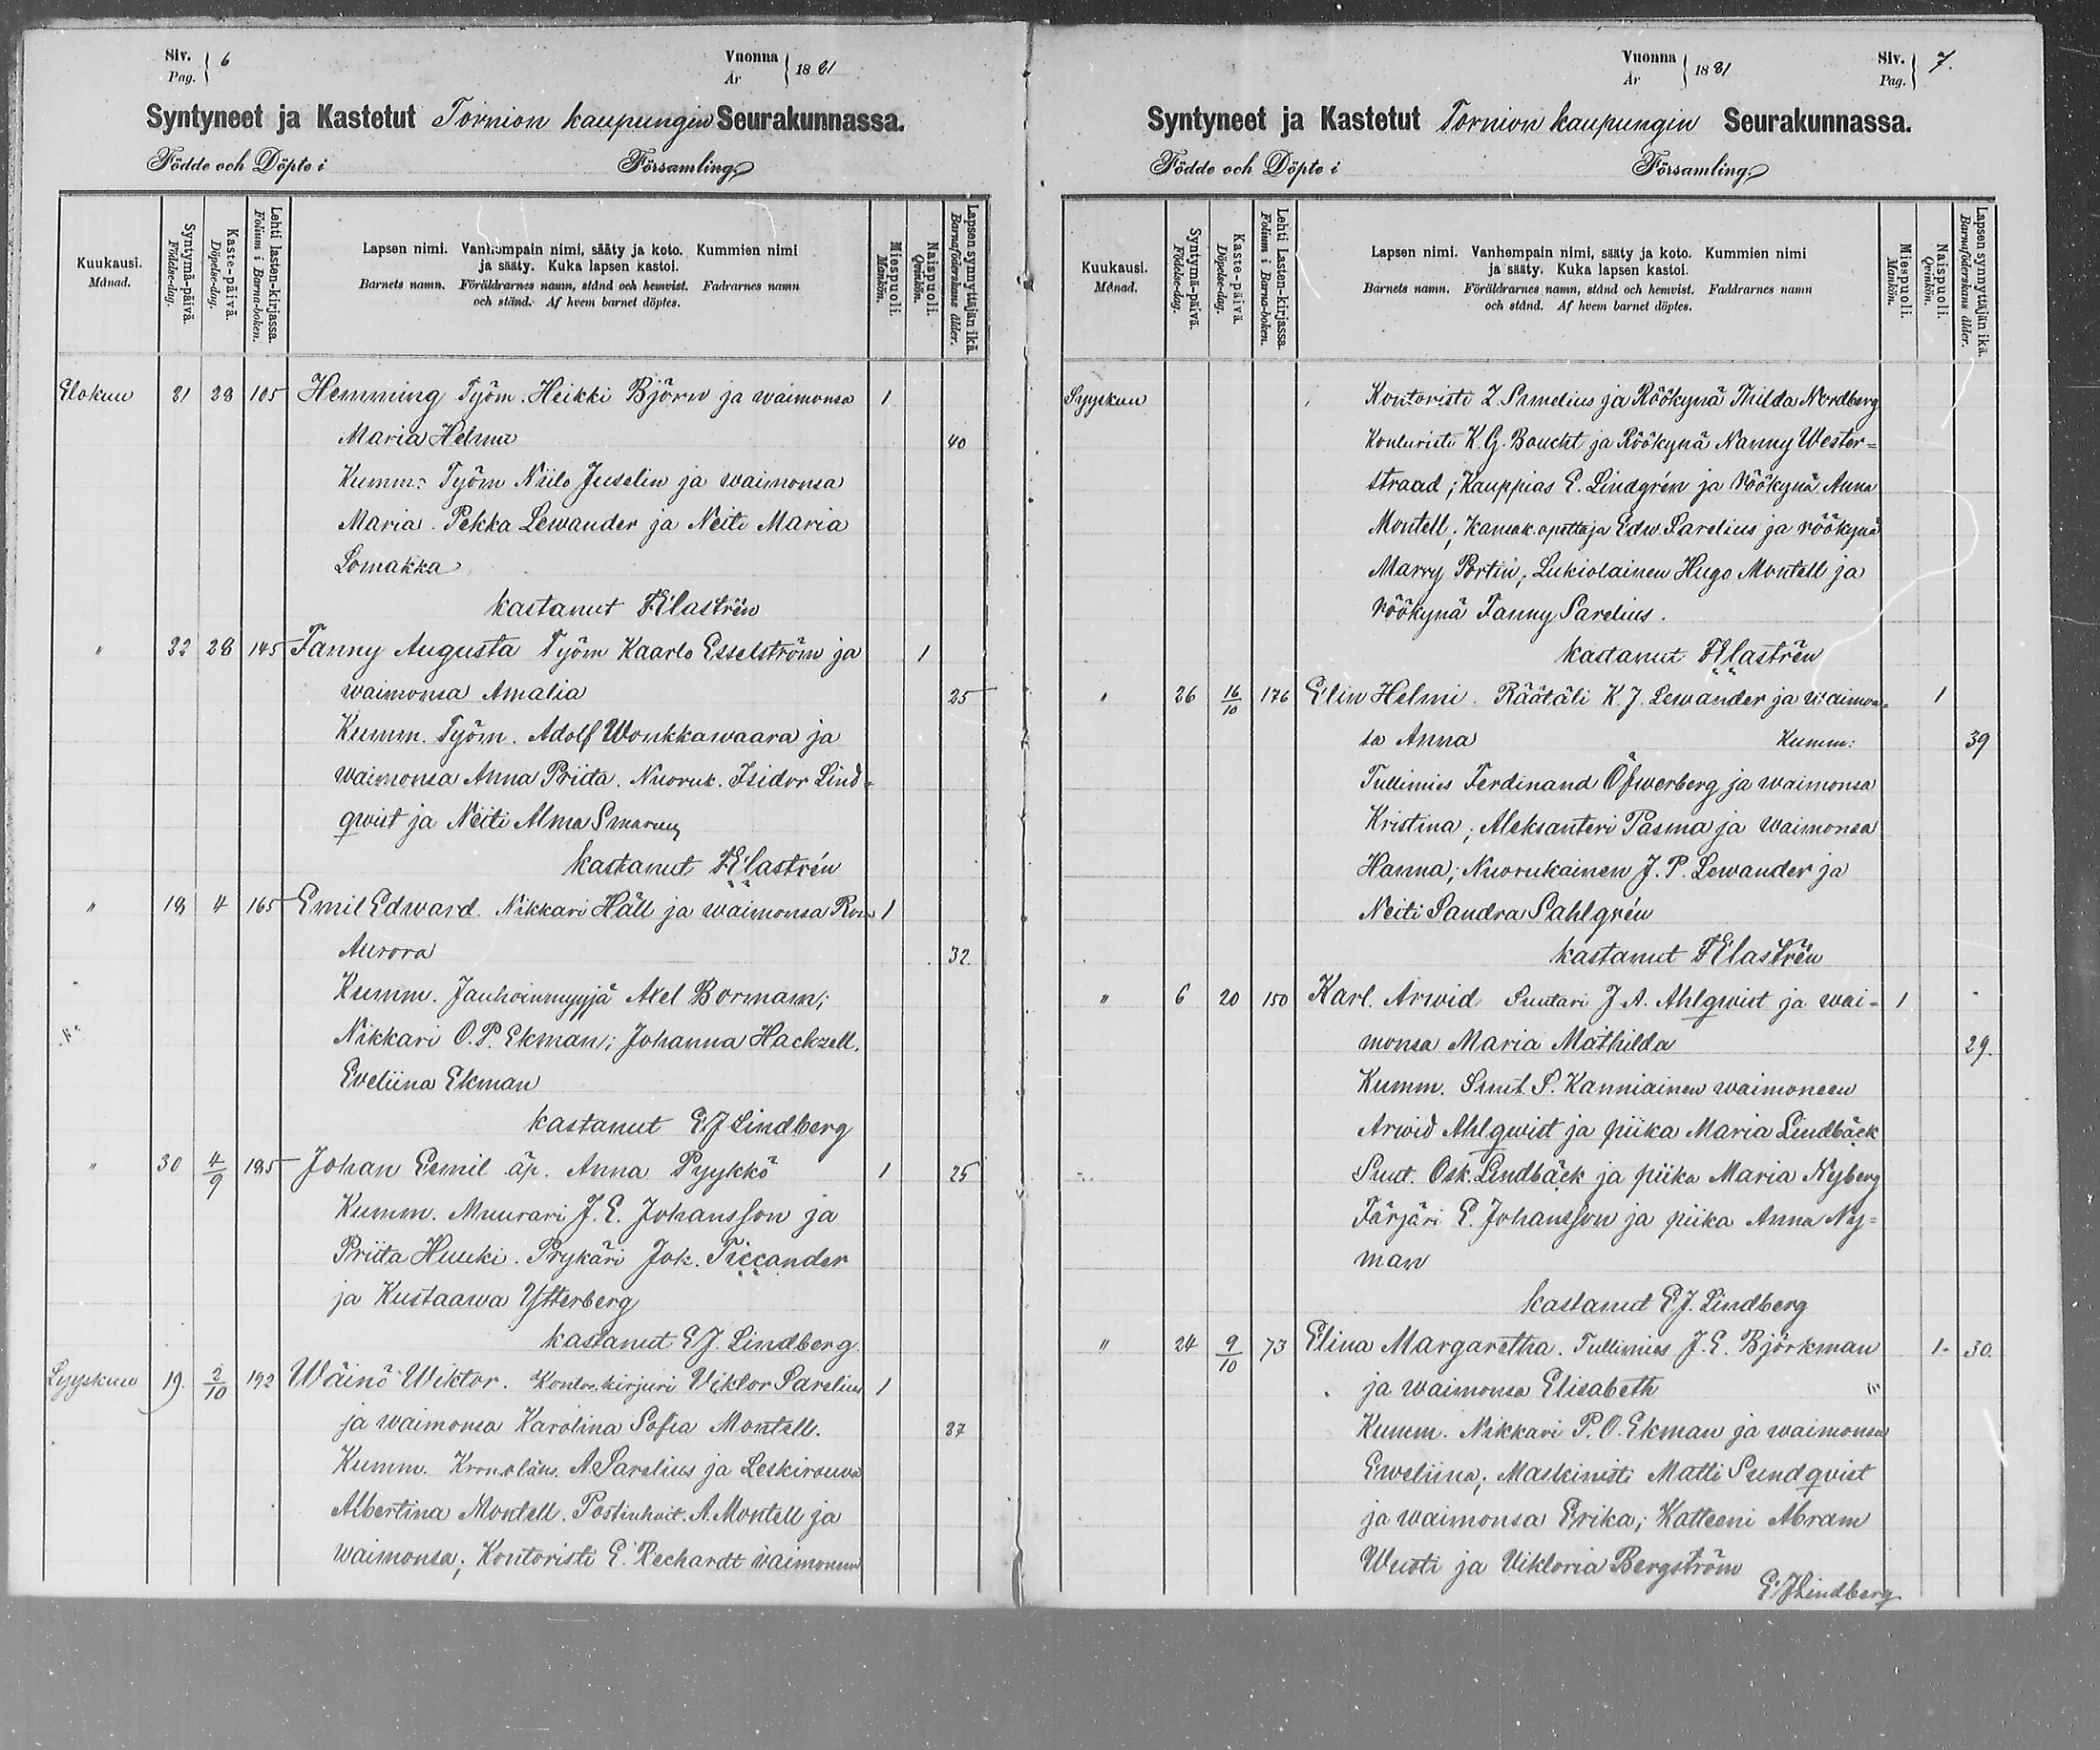 Siv. Pag. 6
Vuonna År 1881
Syntyneet ja Kastetut Tornion kaupungin Seurakunnassa.
Födde och Döpte i Församling
Kuukausi. Månad.
Syntymä-päivä. Födelse-dag.
Kaste-päivä. Döpelse-dag.
Lehti lasten-kirjassa. Folium i Barna-boken.
Lapsen nimi. Vanhempain nimi, sääty ja koto. Kummien nimi
ja sääty. Kuka lapsen kastoi.
Barnets namn. Föräldrarnes namn, stånd och hemvist. Fadrarnes namn
och stånd. Af hvem barnet döptes.
Miespuoli. Mankön.
Naispuoli. Qvinkön.
Lapsen synnyttäjän ikä. Barnaföderskans ålder.
Elokuu 21 28 105 Hemming Työm. Heikki Björn ja waimonsa 1
Maria Helena 40
Kumm: Työm Niilo Juselin ja waimonsa
Maria. Pekka Lewander ja Neiti Maria
Lomakka
kastanut F. E. Castrén
" 22 28 145 Fanny Augusta Työm Kaarlo Esselström ja 1
waimonsa Amalia 25
Kumm. Työm. Adolf Wonkkawaara ja
waimonsa Anna Priita. Nuoruk. Isidor Lind-
qwist ja Neiti Alma
kastanut F. E. Castrén
" 18 4 165 Emil Edward. Nikkari Häll ja waimonsa 1
Aurora 32.
Kumm. Jauhoinmyyjä Axel Bormam;
Nikkari O. P. Ekman; Johanna Hackzell.
Eveliina Ekman
kastanut E J Lindberg
" 30 4/9 185 Johan Eemil äp. Anna Pyykkö 1 25
Kumm. Muurari J. E. Johansson ja
Priita Huuki. Prykäri Joh. Ticcander
ja Kustaawa Ytterberg
kastanut E J. Lindberg
Syyskuu 19. 2/10 192 Wäinö Wiktor. Kontor.kirjuri Viktor Sarelius 1
ja waimonsa Karolina Sofia Montell. 27
Kumm. Kronoläns. A. Sarelius ja Leskirouva
Albertina Montell. Postinhoit. A. Montell ja
waimonsa; Kontoristi E. Rechardt waimoneen
Vuonna År 1881
Siv. Pag. 7.
Syntyneet ja Kastetut Tornion kaupungin Seurakunnassa.
Födde och Döpte i Församling
Kuukausi. Månad.
Syntymä-päivä. Födelse-dag.
Kaste-päivä. Döpelse-dag.
Lehti Lasten-kirjassa. Folium i Barna-boken.
Lapsen nimi. Vanhempain nimi, sääty ja koto. Kummien nimi
ja sääty. Kuka lapsen kastoi.
Barnets namn. Föräldrarnes namn, stånd och hemvist. Faddrarnes namn
och stånd. Af hvem barnet döptes.
Miespuoli. Mankön.
Naispuoli. Qvinkön.
Lapsen synnyttäjän ikä. Barnaföderskans ålder.
Syyskuu Kontoristi Z. ja Röökynä Thilda Nordberg
Kontoristi K. G. Boucht ja Röökynä Nanny Wester-
straad; Kauppias E. Lindgrén ja röökynä Anna
Montell; Kansak. opettaja Edw Sarelius ja röökynä
Marry Portin; Lukiolainen Hugo Montell ja
röökynä Fanny Sarelius.
kastanut F. E. Castrén
" 26 16/10 176 Elin Helmi. Räätäli K. J. Lewander ja waimon- 1
sa Anna Kumm: 39
Tullimies Ferdinand Öfwerberg ja waimonsa
Kristina; Aleksanteri Pasma ja waimonsa
Hanna; Nuorukainen J. P. Lewander ja
Neiti Sandra Sahlgrén
kastanut F. E. Castrén
" 6 20 150 Karl. Arwid Suutari J A. Ahlqwist ja wai- 1
monsa Maria Mathilda 29.
Kumm. Suut. P. Kanniainen waimoneen
Arwid Ahlqwist ja piika Maria Lindbäck
Suut. Osk. Lindbäck ja piika Maria Nyberg
Färjäri E. Johansson ja piika Anna Ny-
man
kastanut E. J. Lindberg
" 24 9/10 73 Elina Margaretha. Tullimies J. E. Björkman 1. 30.
ja waimonsa Elisabeth
Kumm. Nikkari P. O. Ekman ja waimonsa
Eweliina; Maskinisti Matti Sundqvist
ja waimonsa Erika; Katteeni Abram
Wuoti ja Viktoria Bergström
E. J Lindberg